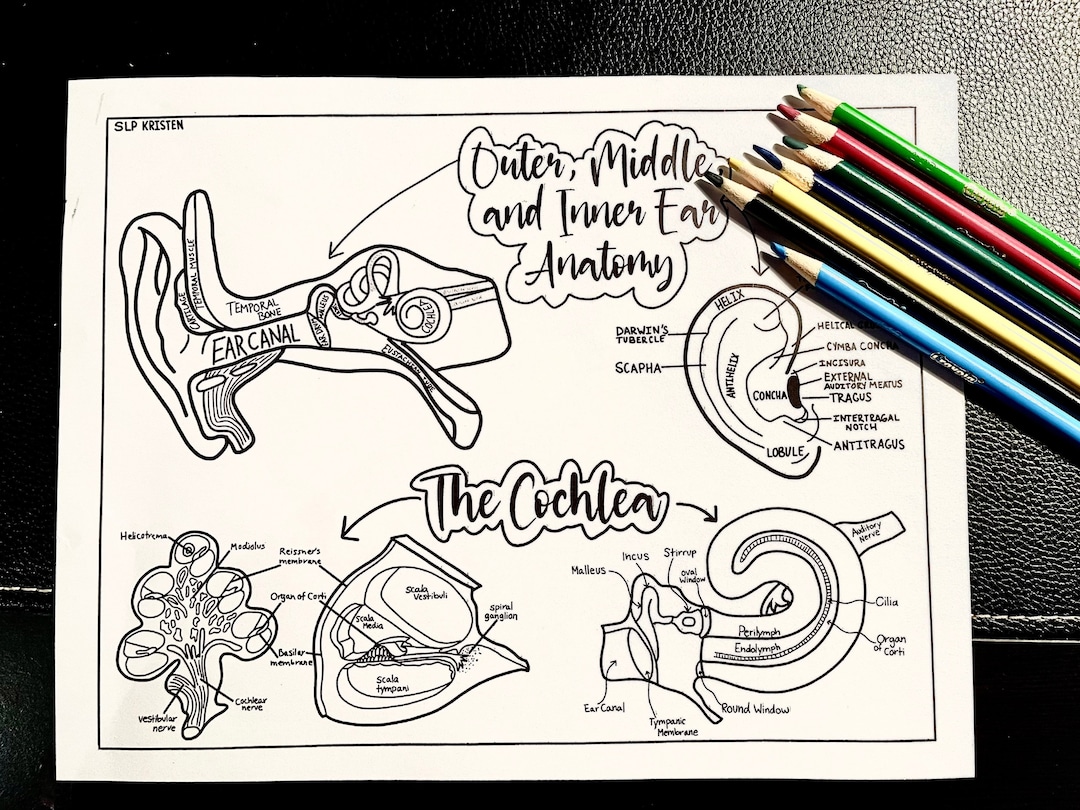 SLP KRISTEN
Outer, Middle,
and Inner Ear
Anatomy
CARTILAGE
TEMPORAL MUSCLE
TEMPORAL
BONE
EAR CANAL
COCHLEA
EUSTACHIAN TUBE
HELIX
DARWIN'S
TUBERCLE
SCAPHA
ANTIHELIX
CONCHA
LOBULE
HELICAL
CYMBA CONCHA
INCISURA
EXTERNAL
AUDITORY MEATUS
TRAGUS
INTERTRAGAL
NOTCH
ANTITRAGUS
The Cochlea
Helicotrema
Modiolus
Reissner's
membrane
Organ of Corti
Basilar
membrane
Vestibular
nerve
Cochlear
nerve
Scala
Vestibuli
Scala
Media
Scala
tympani
spiral
ganglion
Malleus
Incus
Stirrup
oval
Window
Auditory
Nerve
Cilia
Organ
of Corti
Perilymph
Endolymph
Ear Canal
Tympanic
Membrane
Round Window
Crayola